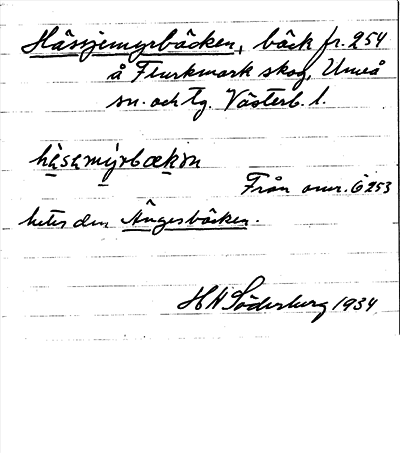 Hässjemyrbäcken, bäck fr. 254
å Flurkmark skog, Umeå
sn. och tg. Västerb. l.
Från omr. ö 253
heter den Ängesbäcken.
H H Söderberg 1934